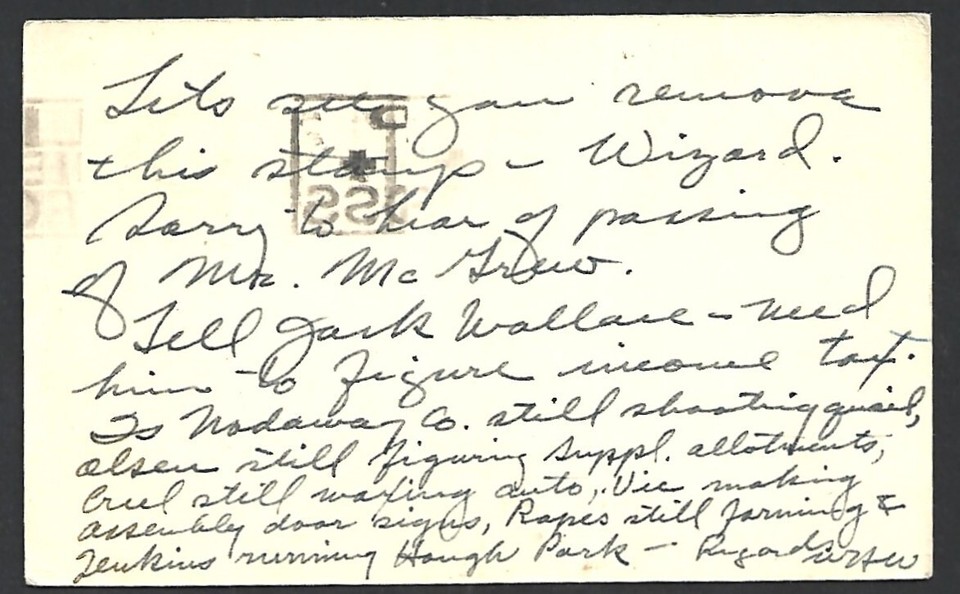 Lets see you remove
this stamp - Wizard.
Sorry to hear of passing
of Mr. McGrew.
Tell Jack Wallace - need
him to figure income tax.
Is Nodaway Co. still shooting quail,
Olsen still figuring suppl. allotments,
Creel still waxing auto, Vic making
assembly door signs, Rapes still farming &
Jenkins running Hough Park - Regards